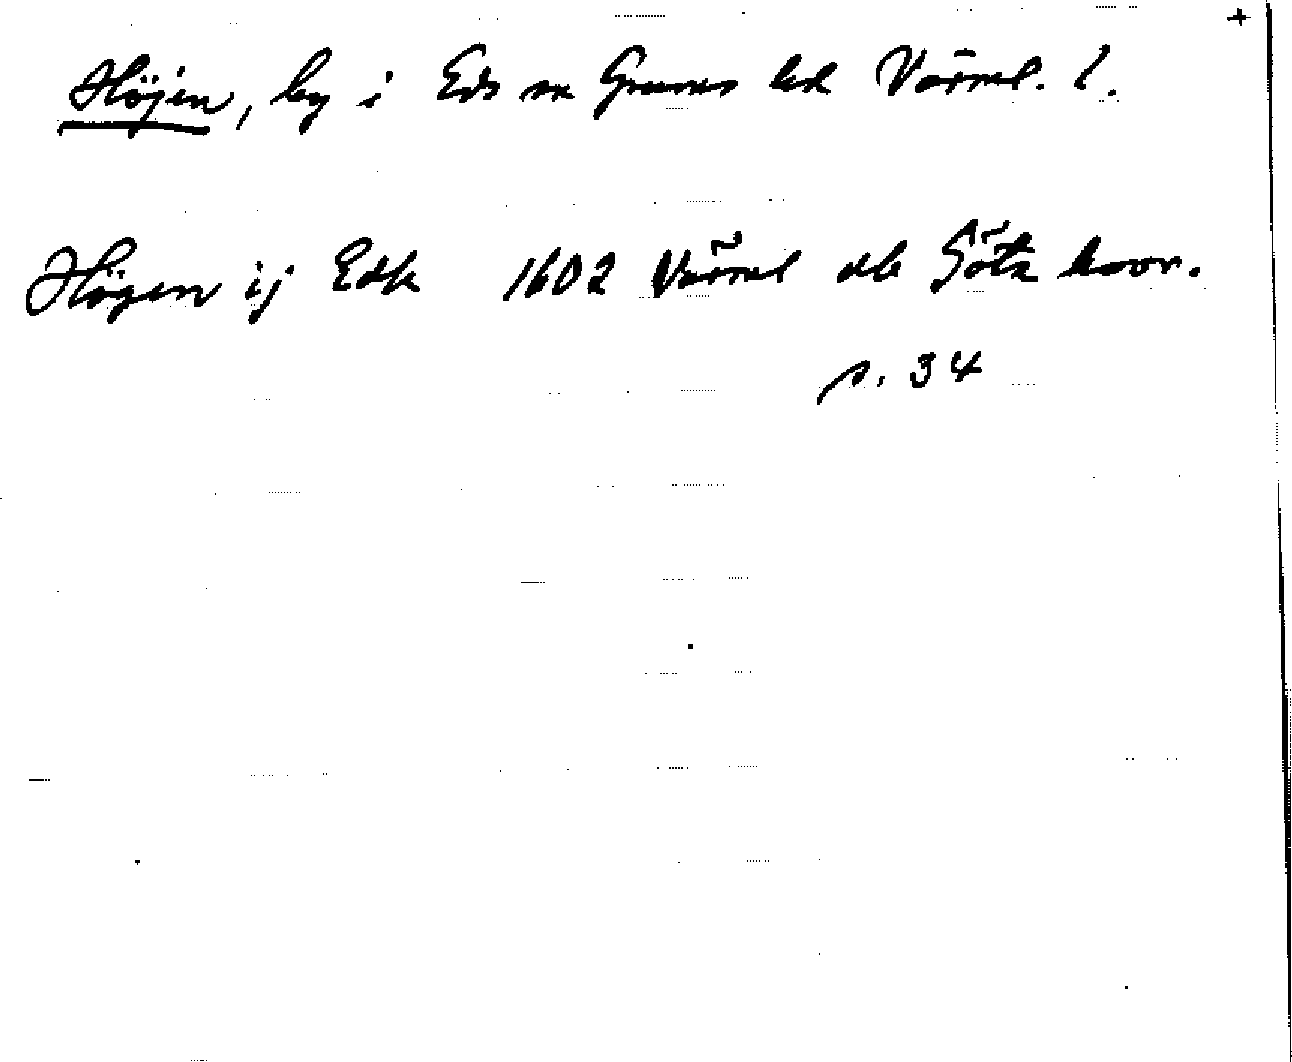 +
Höjen, by i Eds sn Grums hd Värml. l.
Högen ij Edh 1602 Värml äb Göta hovr.
s. 34